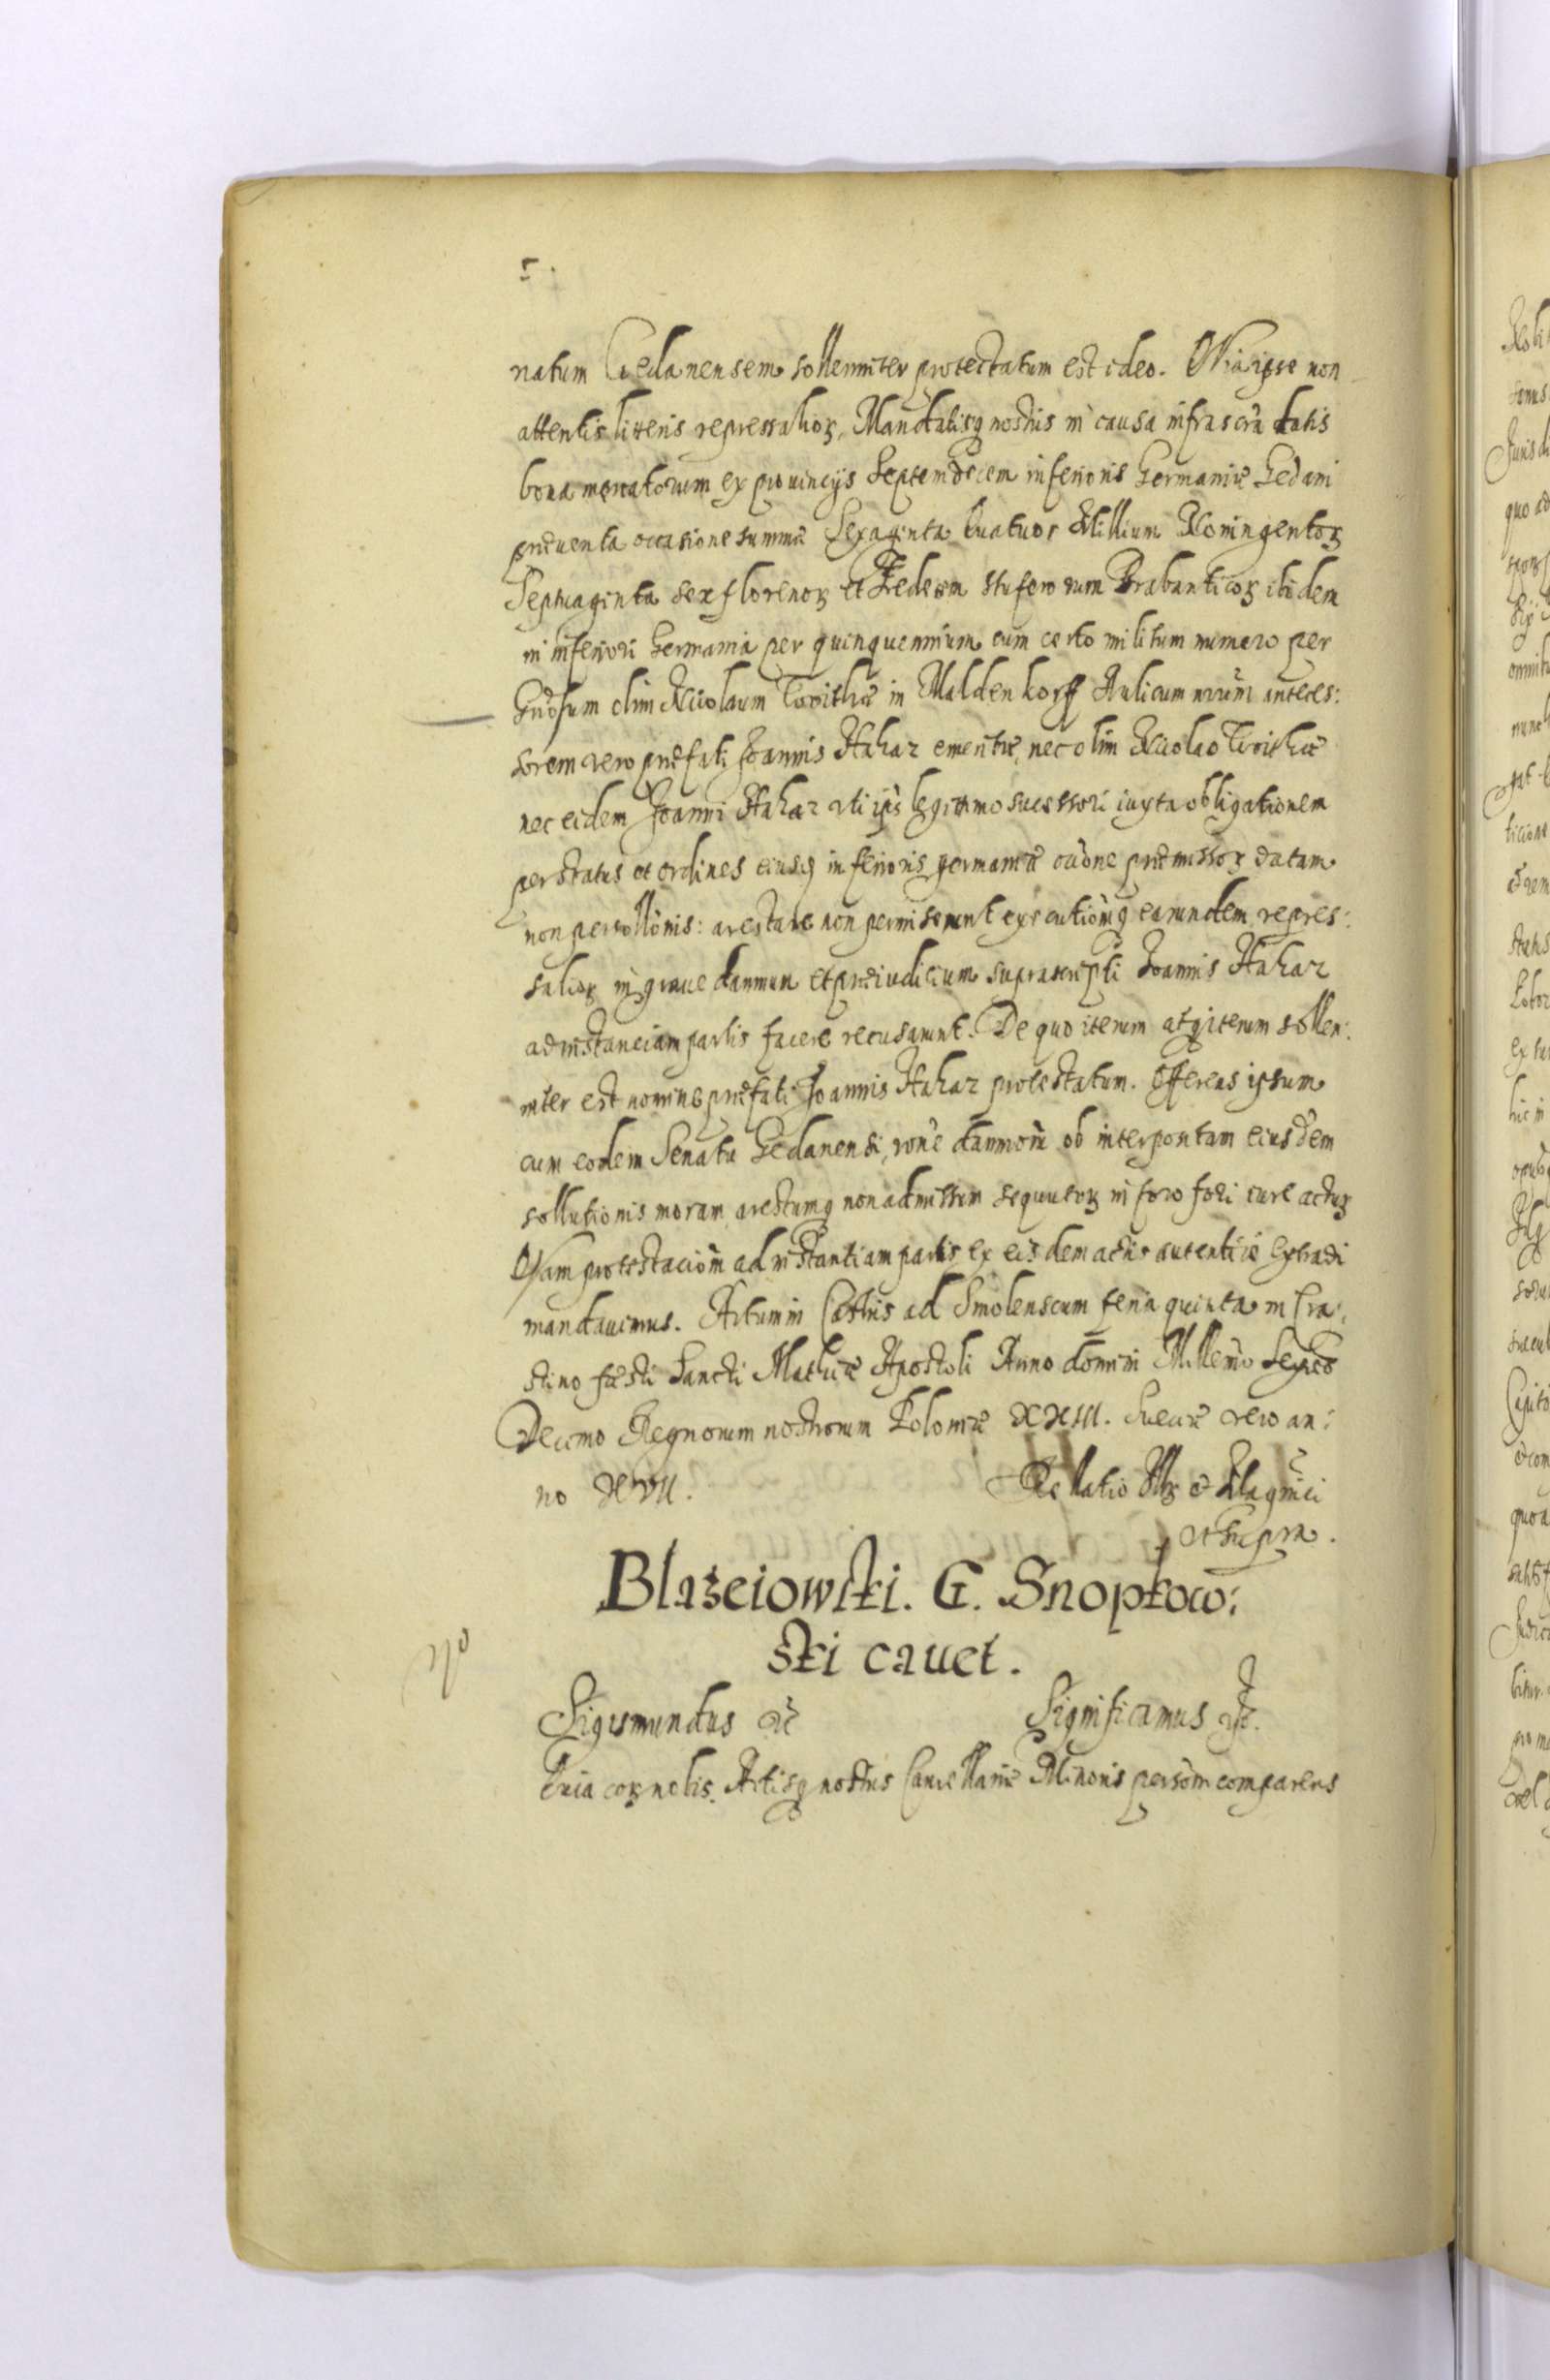 natum Gedanensem sollenniter protestatum est ideo. Quia ipse non
attentis litteris repressalioꝝ, Mandatisq̃ nostris in causa infrascrã datis
bona mercatorum ex prouincijs Septemdecem inferioris Germaniæ Gedani
præuenta occasione summæ Sexaginta quatuor Millium Noningentoꝝ
Septuaginta sex florenoꝝ et Sedecem stuferorum Brabanticoꝝ ibidem
in inferiori Germania per quinquennium cum certo militum numero per
Gñosum olim Nicolaum in Maldenkorff Aulicum nrũm anteces:
sorem vero præfati Joannis Hahaz emeritæ, nec olim Nicolao
nec eidem Joanni Hahaz uti ips legittimo sucessori iuxta obligationem
per status et ordines eiusq̃ inferioris germaniæ præmissoꝝ datam
non persollõnis: arestare non permiserunt executiõmq̃ earundem repres:
salioꝝ in graue damnum et præiudicium suprascripti Joannis Hahaz
ad instanciam partis facere recusarunt. De quo iterum atq̃ iterum sollen:
niter est nomine præfati Joannis Hahaz protestatum. Offerens ipsum
cum eodem Senatu Gedanensi, rone damnoru ob interpositam eiusdem
sollutionis moram arestumq̃ non admissum sequutoꝝ in foro fori iure acturꝝ
Qvam protestaciõm ad instantiam partis ex eisdem actis autentice extradi
mandauimus. Actum in Castris ad Smolenscum feria quinta in Cra:
stino fæsti Sancti Mathiæ Apostoli Anno domini Millemo Sexcõ
Decimo Regnorum nostrorum Poloniæ XXIII. Sueciæ vero an:
no XVII. Rellatio Illr̃ et Magnĩci
ut supra.
Błażeiowski. G. Snopkow:
ski cauet.
Sigismundus &c̃ Significamus &c̃.
Quia coꝝ nobis. Actisq̃ nostris Cancellariæ Minoris persõnr comparens